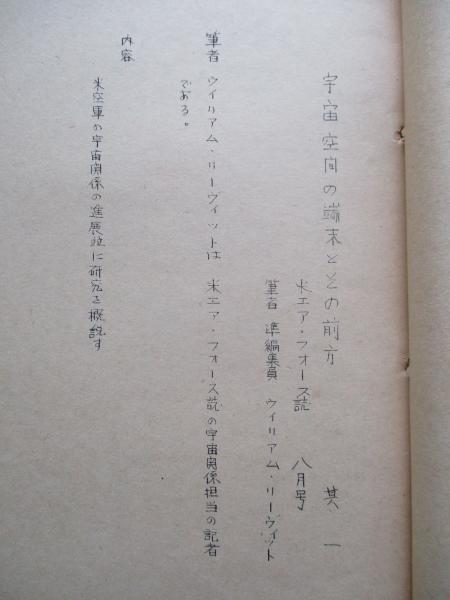 宇宙空间の端末とその前方 其一
米エア・フォース誌 八月号
筆者 準編集員 ウイリアム・リーヴィット
筆者 ウイリアム・リーヴィットは 米エア・フォース誌の宇宙関係担当の記者
である。
内容
米空軍の宇宙関係の進展並に研究を概説す